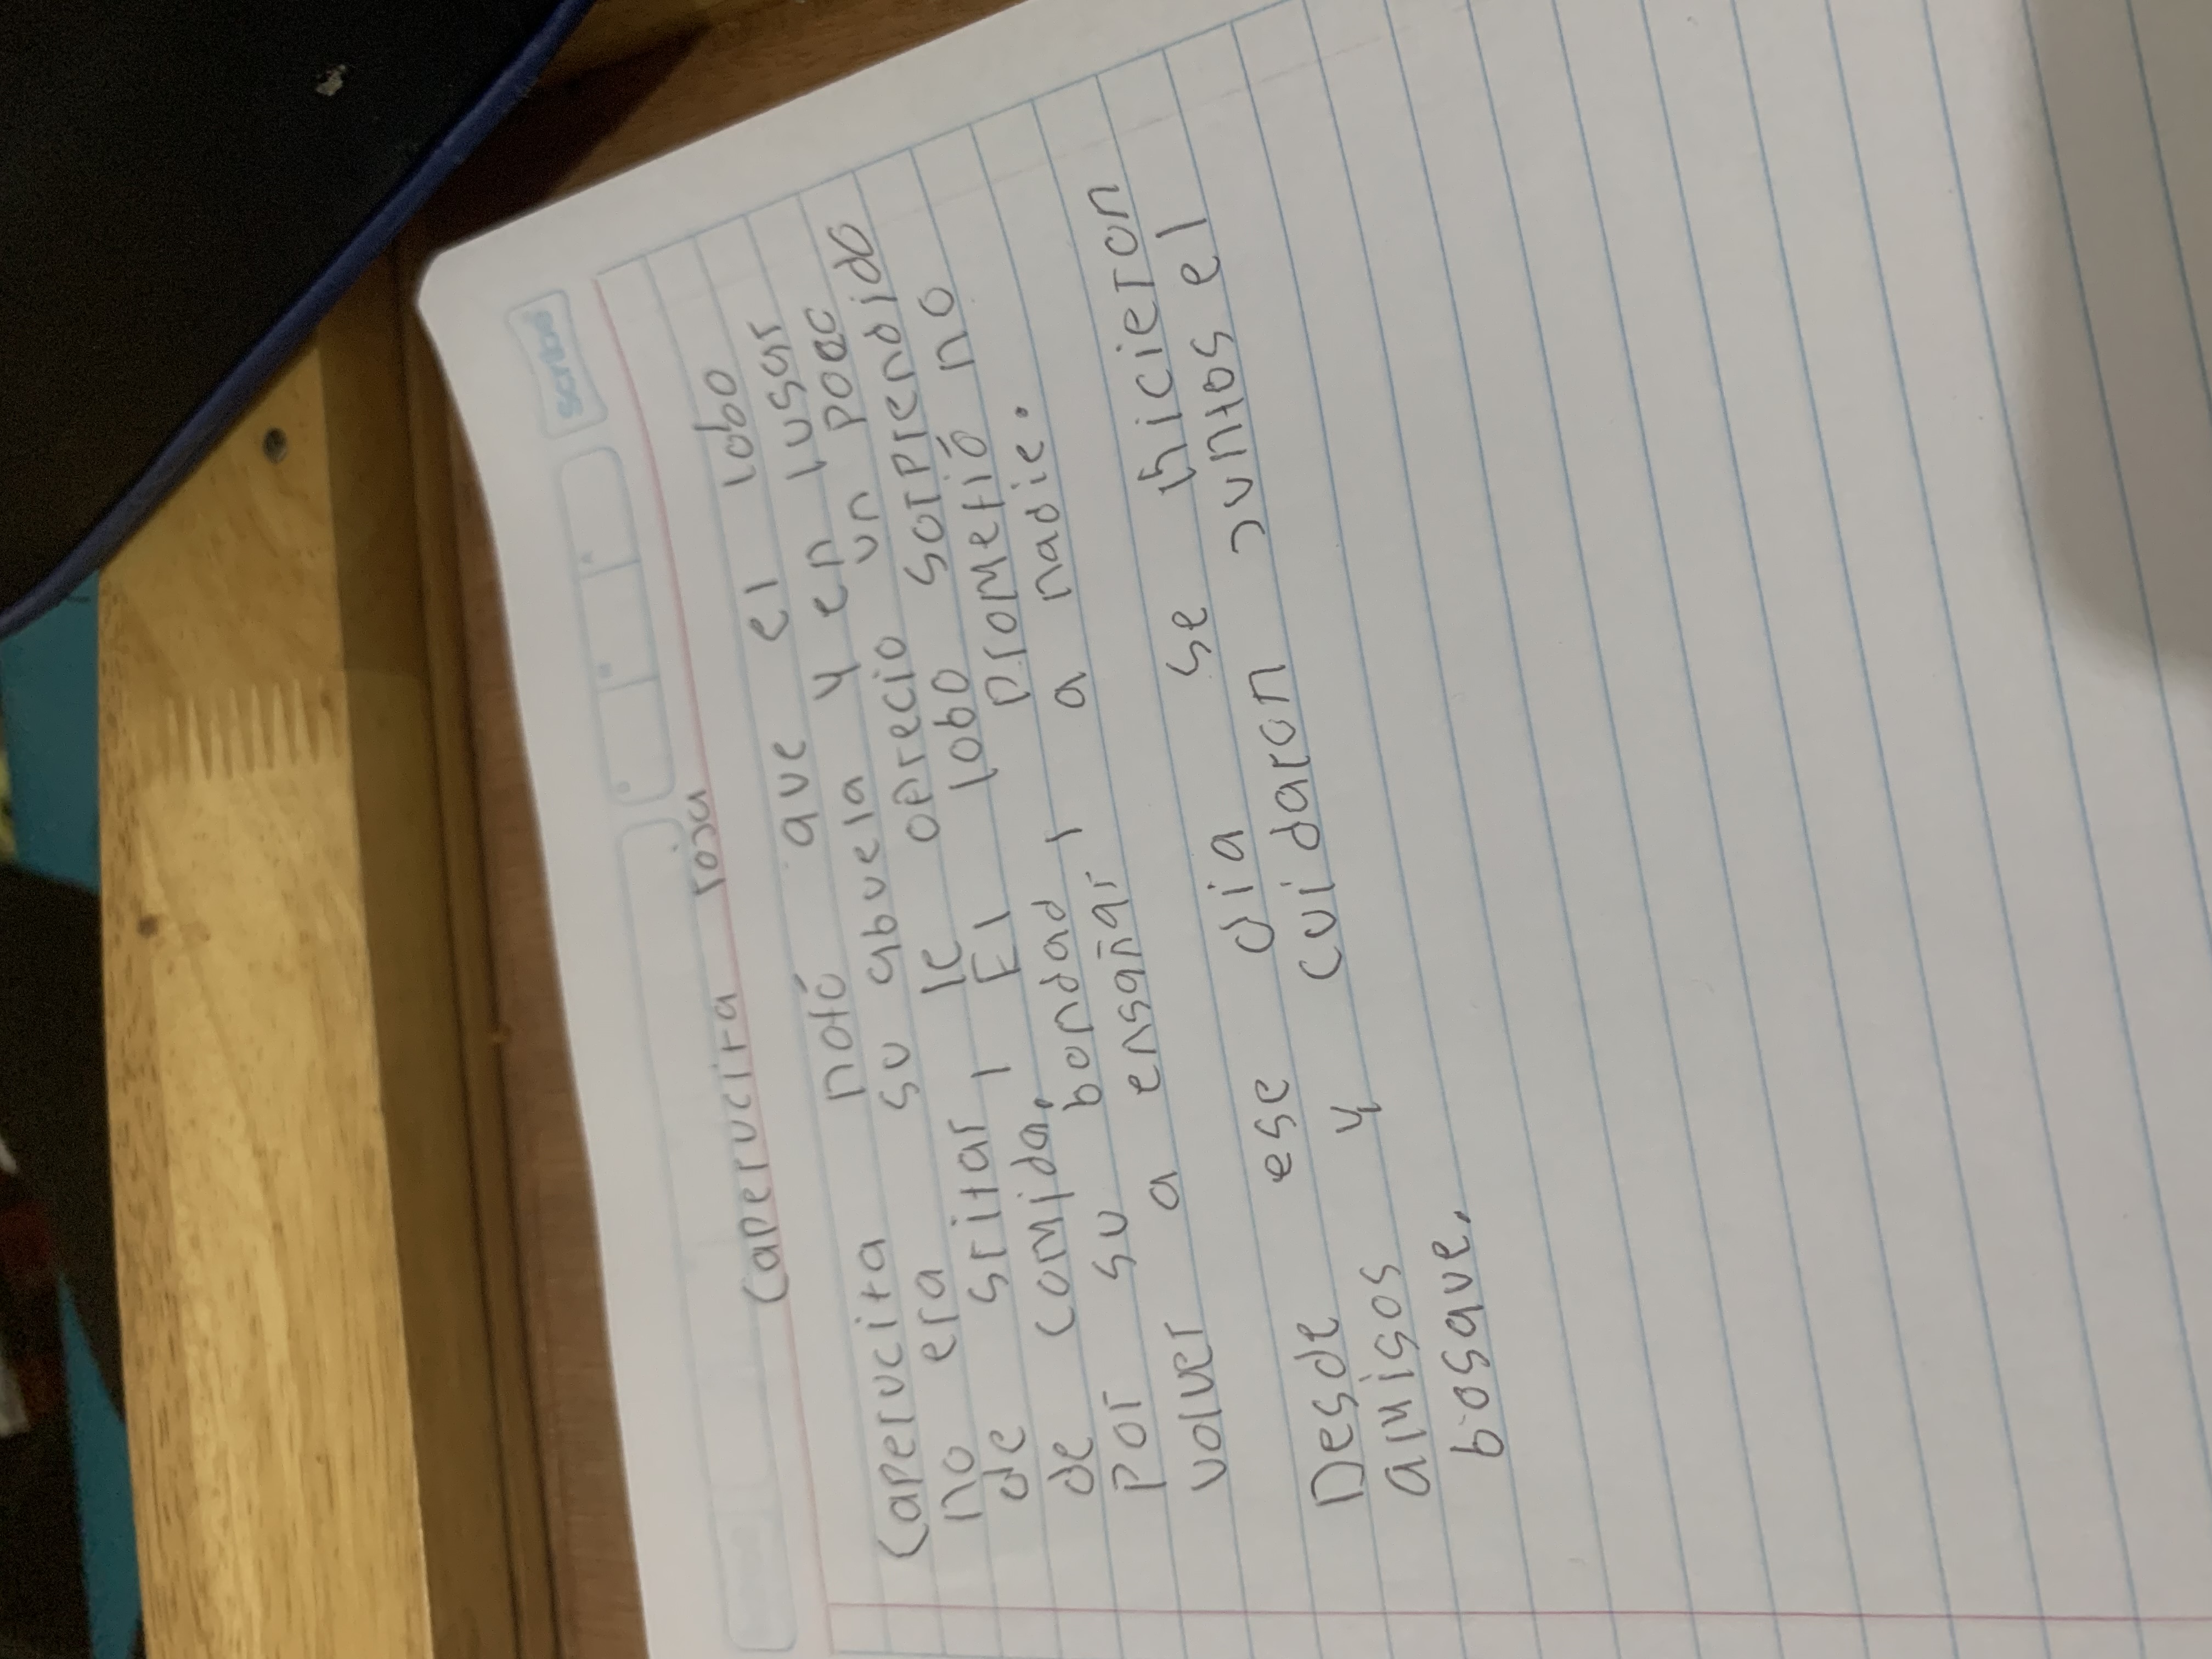 Scribe
Caperucita roja
Caperucita notó que el lobo
no era su abuela y en lugar
de gritar, le ofrecio un poco
de comida. El lobo sorprendido
por su bondad, prometió no
volver a engañar a nadie.
Desde ese dia se hicieron
amigos y cuidaron juntos el
bosque.